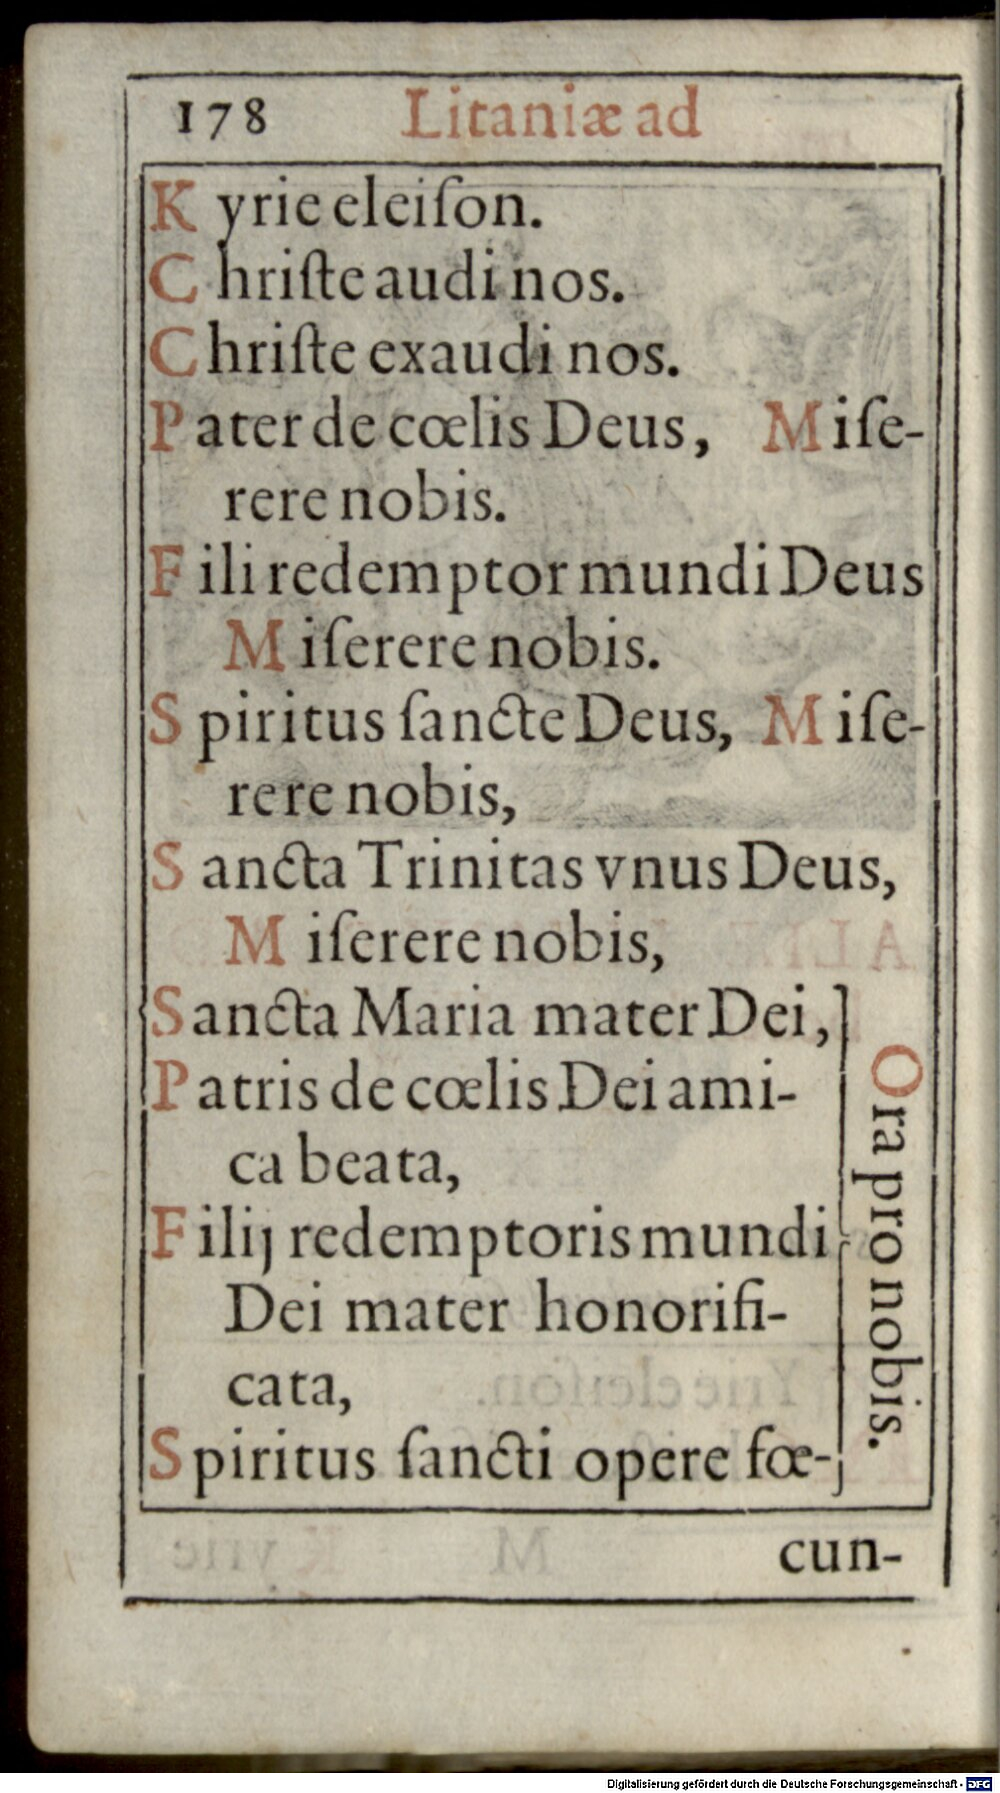 178 Litaniæ ad
Kyrie eleiſon.
Chriſte audi nos.
Chriſte exaudi nos.
Pater de cœlis Deus, Miſe-
rere nobis.
Fili redemptor mundi Deus
Miſerere nobis.
Spiritus ſancte Deus, Miſe-
rere nobis,
Sancta Trinitas vnus Deus,
Miſerere nobis,
Sancta Maria mater Dei,
Patris de cœlis Dei ami-
ca beata,
Filij redemptoris mundi
Dei mater honorifi-
cata,
Spiritus ſancti opere fœ-
Ora pro nobis.
cun-
Digitalisierung gefördert durch die Deutsche Forschungsgemeinschaft - DFG